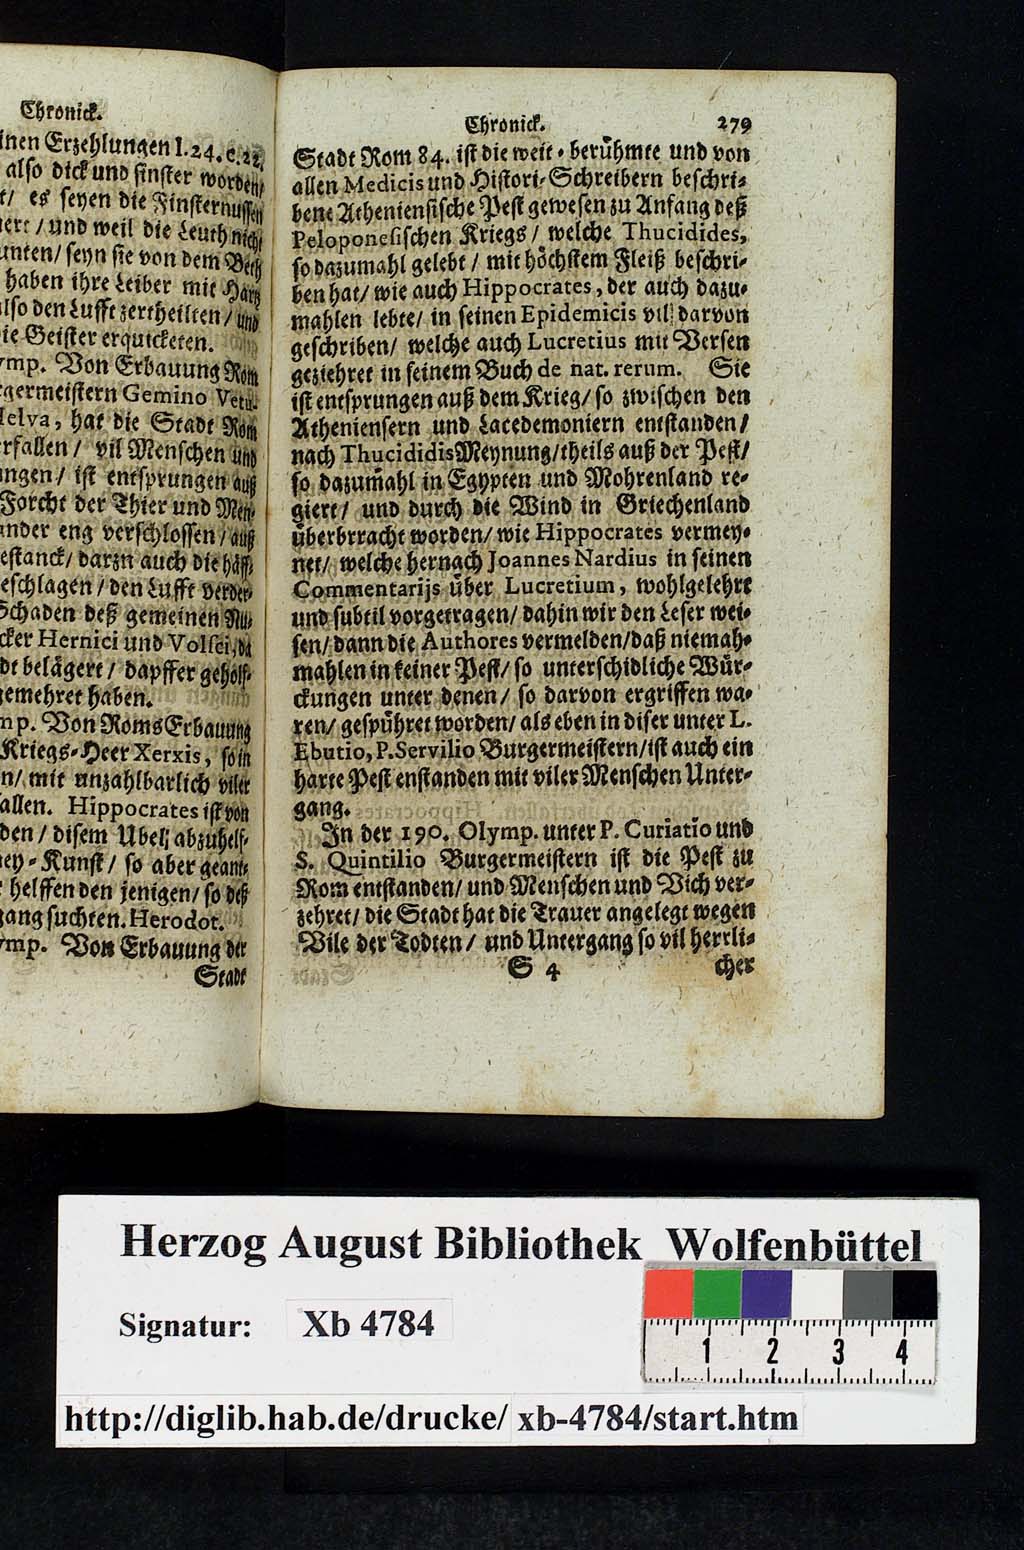 Chronick.
inen Erzehlungen l. 24. c. 22.
also dick und finster worden/
t/ es seyen die Finsternussen
iert / und weil die Leuth nicht
unten/ seyn sie von dem Bech
haben ihre Leiber mit Hartz
also den Lufft zertheilten / und
die Geister erquicketen.
ymp. Von Erbauung Rom
rgermeistern Gemino Vetu-
Helva, hat die Stadt Rom
rfallen / vil Menschen und
ngen / ist entsprungen auß
Forcht der Thier und Men-
ander eng verschlossen / auß
estanck/ darzn auch die häff-
eschlagen / den Lufft verder-
Schaden deß gemeinen Nu-
cker Hernici und Volsci, da
dt belägert / dapffer geholf-
gemehret haben.
mp. Von Roms Erbauung
Kriegs-Heer Xerxis, so in
n/ mit unzahlbarlich viler
allen. Hippocrates ist von
den / disem Ubel abzuhelf-
ney-Kunst / so aber geant-
helffen den jenigen / so deß
gang suchten. Herodot.
ymp. Von Erbauung der
Stadt
Chronick. 279
Stadt Rom 84. ist die weit-berühmte und von
allen Medicis und Histori-Schreibern beschri-
bene Atheniensische Pest gewesen zu Anfang deß
Peloponesischen Kriegs / welche Thucidides,
so dazumahl gelebt / mit höchstem Fleiß beschri-
ben hat/ wie auch Hippocrates, der auch dazu-
mahlen lebte/ in seinen Epidemicis vil darvon
geschriben/ welche auch Lucretius mit Versen
geziehret in seinem Buch de nat. rerum. Sie
ist entsprungen auß dem Krieg/ so zwischen den
Atheniensern und Lacedemoniern entstanden /
nach Thucididis Meynung/theils auß der Pest/
so dazumahl in Egypten und Mohrenland re-
giert / und durch die Wind in Griechenland
überbrracht worden/ wie Hippocrates vermey-
net/ welche hernach Joannes Nardius in seinen
Commentarijs über Lucretium, wohlgelehrt
und subtil vorgetragen/ dahin wir den Leser wei-
sen/ dann die Authores vermelden/daß niemah-
mahlen in keiner Pest/ so unterschidliche Wür-
ckungen unter denen / so darvon ergriffen wa-
ren/ gespühret worden/ als eben in diser unter L.
Ebutio, P. Servilio Burgermeistern/ist auch ein
harte Pest enstanden mit viler Menschen Unter-
gang.
In der 190. Olymp. unter P. Curiatio und
S. Quintilio Burgermeistern ist die Pest zu
Rom entstanden/ und Menschen und Vich ver-
zehret/ die Stadt hat die Trauer angelegt wegen
Vile der Todten / und Untergang so vil herrli-
S 4 cher
Herzog August Bibliothek Wolfenbüttel
Signatur: Xb 4784
1 2 3 4
http://diglib.hab.de/drucke/ xb-4784/start.htm